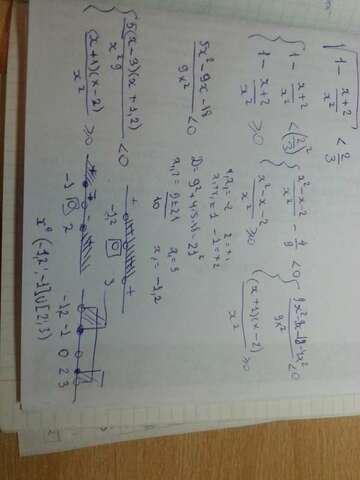 √(1 - (x+2)/x²) < 2/3
{ 1 - (x+2)/x² < (2/3)²
1 - (x+2)/x² ≥ 0
{ (x²-x-2)/x² - 4/9 < 0
(x²-x-2)/x² ≥ 0
{ (9x²-9x-18-4x²)/9x² < 0
(x+1)(x-2)/x² ≥ 0
(5x²-9x-18)/9x² < 0
D = 9²+4·5·18 = 21²
x₁,₂ = (9±21)/10
x₁ = 3
x₂ = -1,2
{ 5(x-3)(x+1,2)/x²9 < 0
(x+1)(x-2)/x² ≥ 0
+ - +
-1,2 0 3
-1 0 2
-1,2 -1 0 2 3
x ∈ (-1,2; -1] ∪ [2; 3)